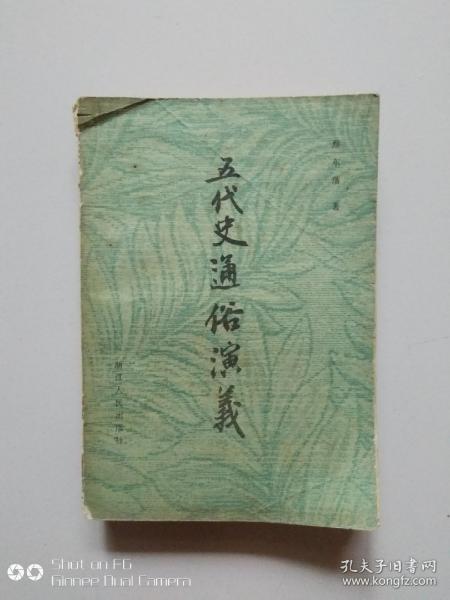 蔡东藩 著
五代史通俗演義
浙江人民出版社
Shot on F6
Gionee Dual Camera
孔夫子旧书网
www.kongfz.com